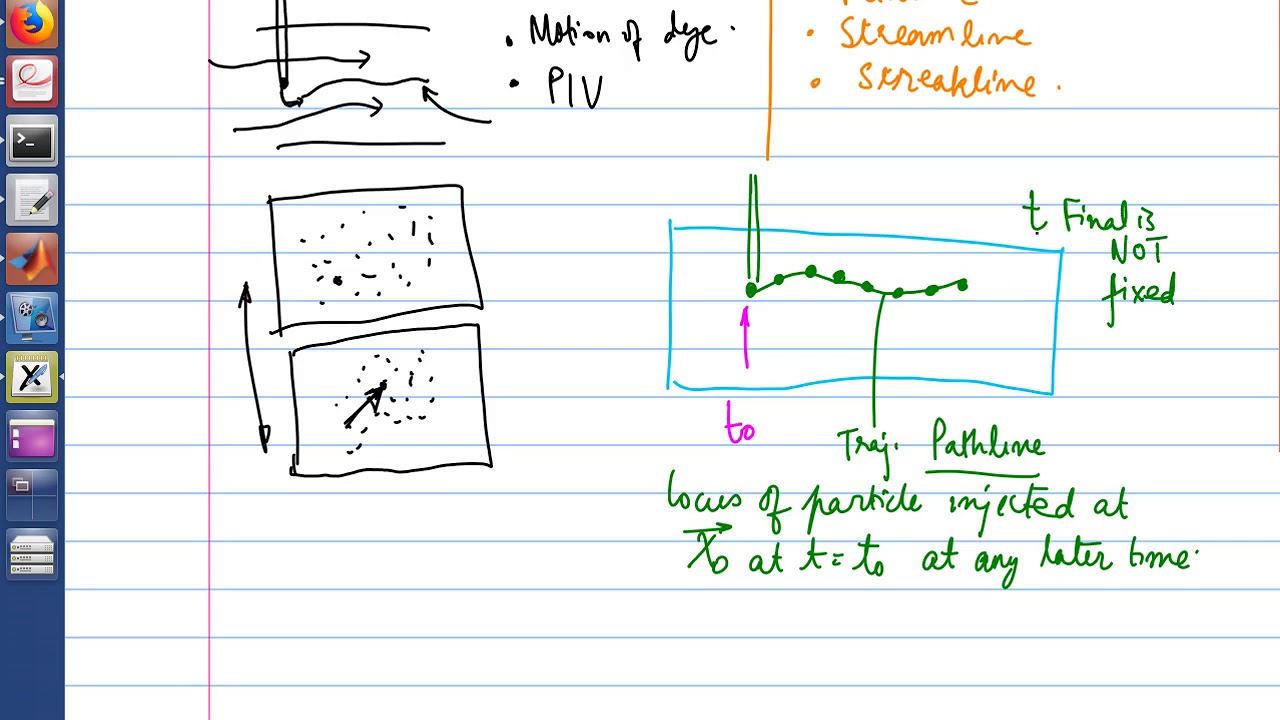 • Motion of dye.
• PIV
• Streamline
• Streakline.
t Final is
NOT
fixed
to
Traj. Pathline
locus of particle injected at
X0 at t = to at any later time.